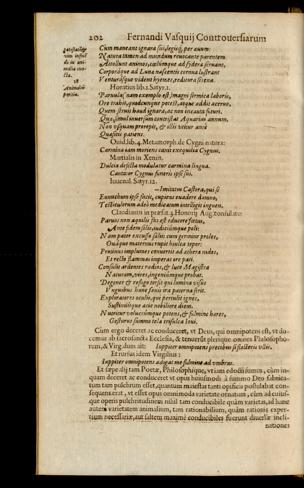 202 Fernandi Vasquij Controuersiarum
Cùm maneant ignara sui, legesq́; per æuum
Natura timen ad mundum reuocante parentem
Attollunt animos, cælumque ad sydera seruant,
Corporaque ad Luna nascentis cornua lustrant
Venturasque vident hyemes, reditura serena.
Horatius lib. 1. Satyr. 1.
Paruula (nam exemplo est) magni formica laboris,
Ore trahit, quodcunque potest, atque addit aceruo,
Quem struit haud ignara, ac non incauta futuri.
Quæ, simul inuersum contristat Aquarius annum,
Non vsquam prorepit, & illis vtitur antè
Quæsitis patiens.
Ouid. lib. 4. Metamorph. de Cygni natura:
Carmina iam moriens canit exequialia Cygnus.
Martialis in Xenin.
Dulcia defecta modulatur carmina lingua.
Cantator Cygnus funeris ipse sui.
Iuuenal. Satyr. 12.
—Imitatus Castora, qui se
Eunuchum ipse facit, cupiens euadere damno,
Testiculorum adeò medicatum intelligit inguen.
Claudianus in præfat. 3. Honorij Aug. consulatu:
Paruos non aquilis fas est educere fœtus,
Ante fidem solis, iudiciumque poli:
Nam pater excusso saliit cum germine proles,
Ouáque maternus rupit hiulca tepor:
Protinus implumes conuertit ad æthera nidos,
Et recto flammas imperat ore pati.
Consulit ardentes radios, & luce Magistra
Naturam, vires, ingeniúmque probat.
Degener & refugo torsit qui lumina visus
Vnguibus hunc sæuis ira paterna ferit.
Exploratores oculis qui pertulit ignes,
Sustinuitque acie nobiliore diem.
Nutritur volucrúmque potens, & fulminis hæres,
Gesturus summo tela trisulca Ioui.
Cùm ergo deceret ac conduceret, vt Deus, qui omnipotens est, vt docemur
rum, & Virg. dum ait: Iuppiter omnipotens precibus si flecteris vllis.
Et rursus idem Virgilius:
Iuppiter omnipotens adigat me fulmine ad vmbras.
Et sæpe alij tam Poetæ, Philosophique,
quam deceret ac conduceret vt opus huiusmodi à summo Deo
tum tam pulchrum esset, quantum maiestas tanti opificis postulabat
sequens erat, vt esset opus omnimoda varietate ornatum,
que operis pulchritudinem nihil tam conducibile quàm varietas, ad hanc
autem varietatem animalium, tam rationabilium, quàm rationis expertium
necessariæ, aut saltem maximè conducibiles fuerunt diuersæ incli-
nationes